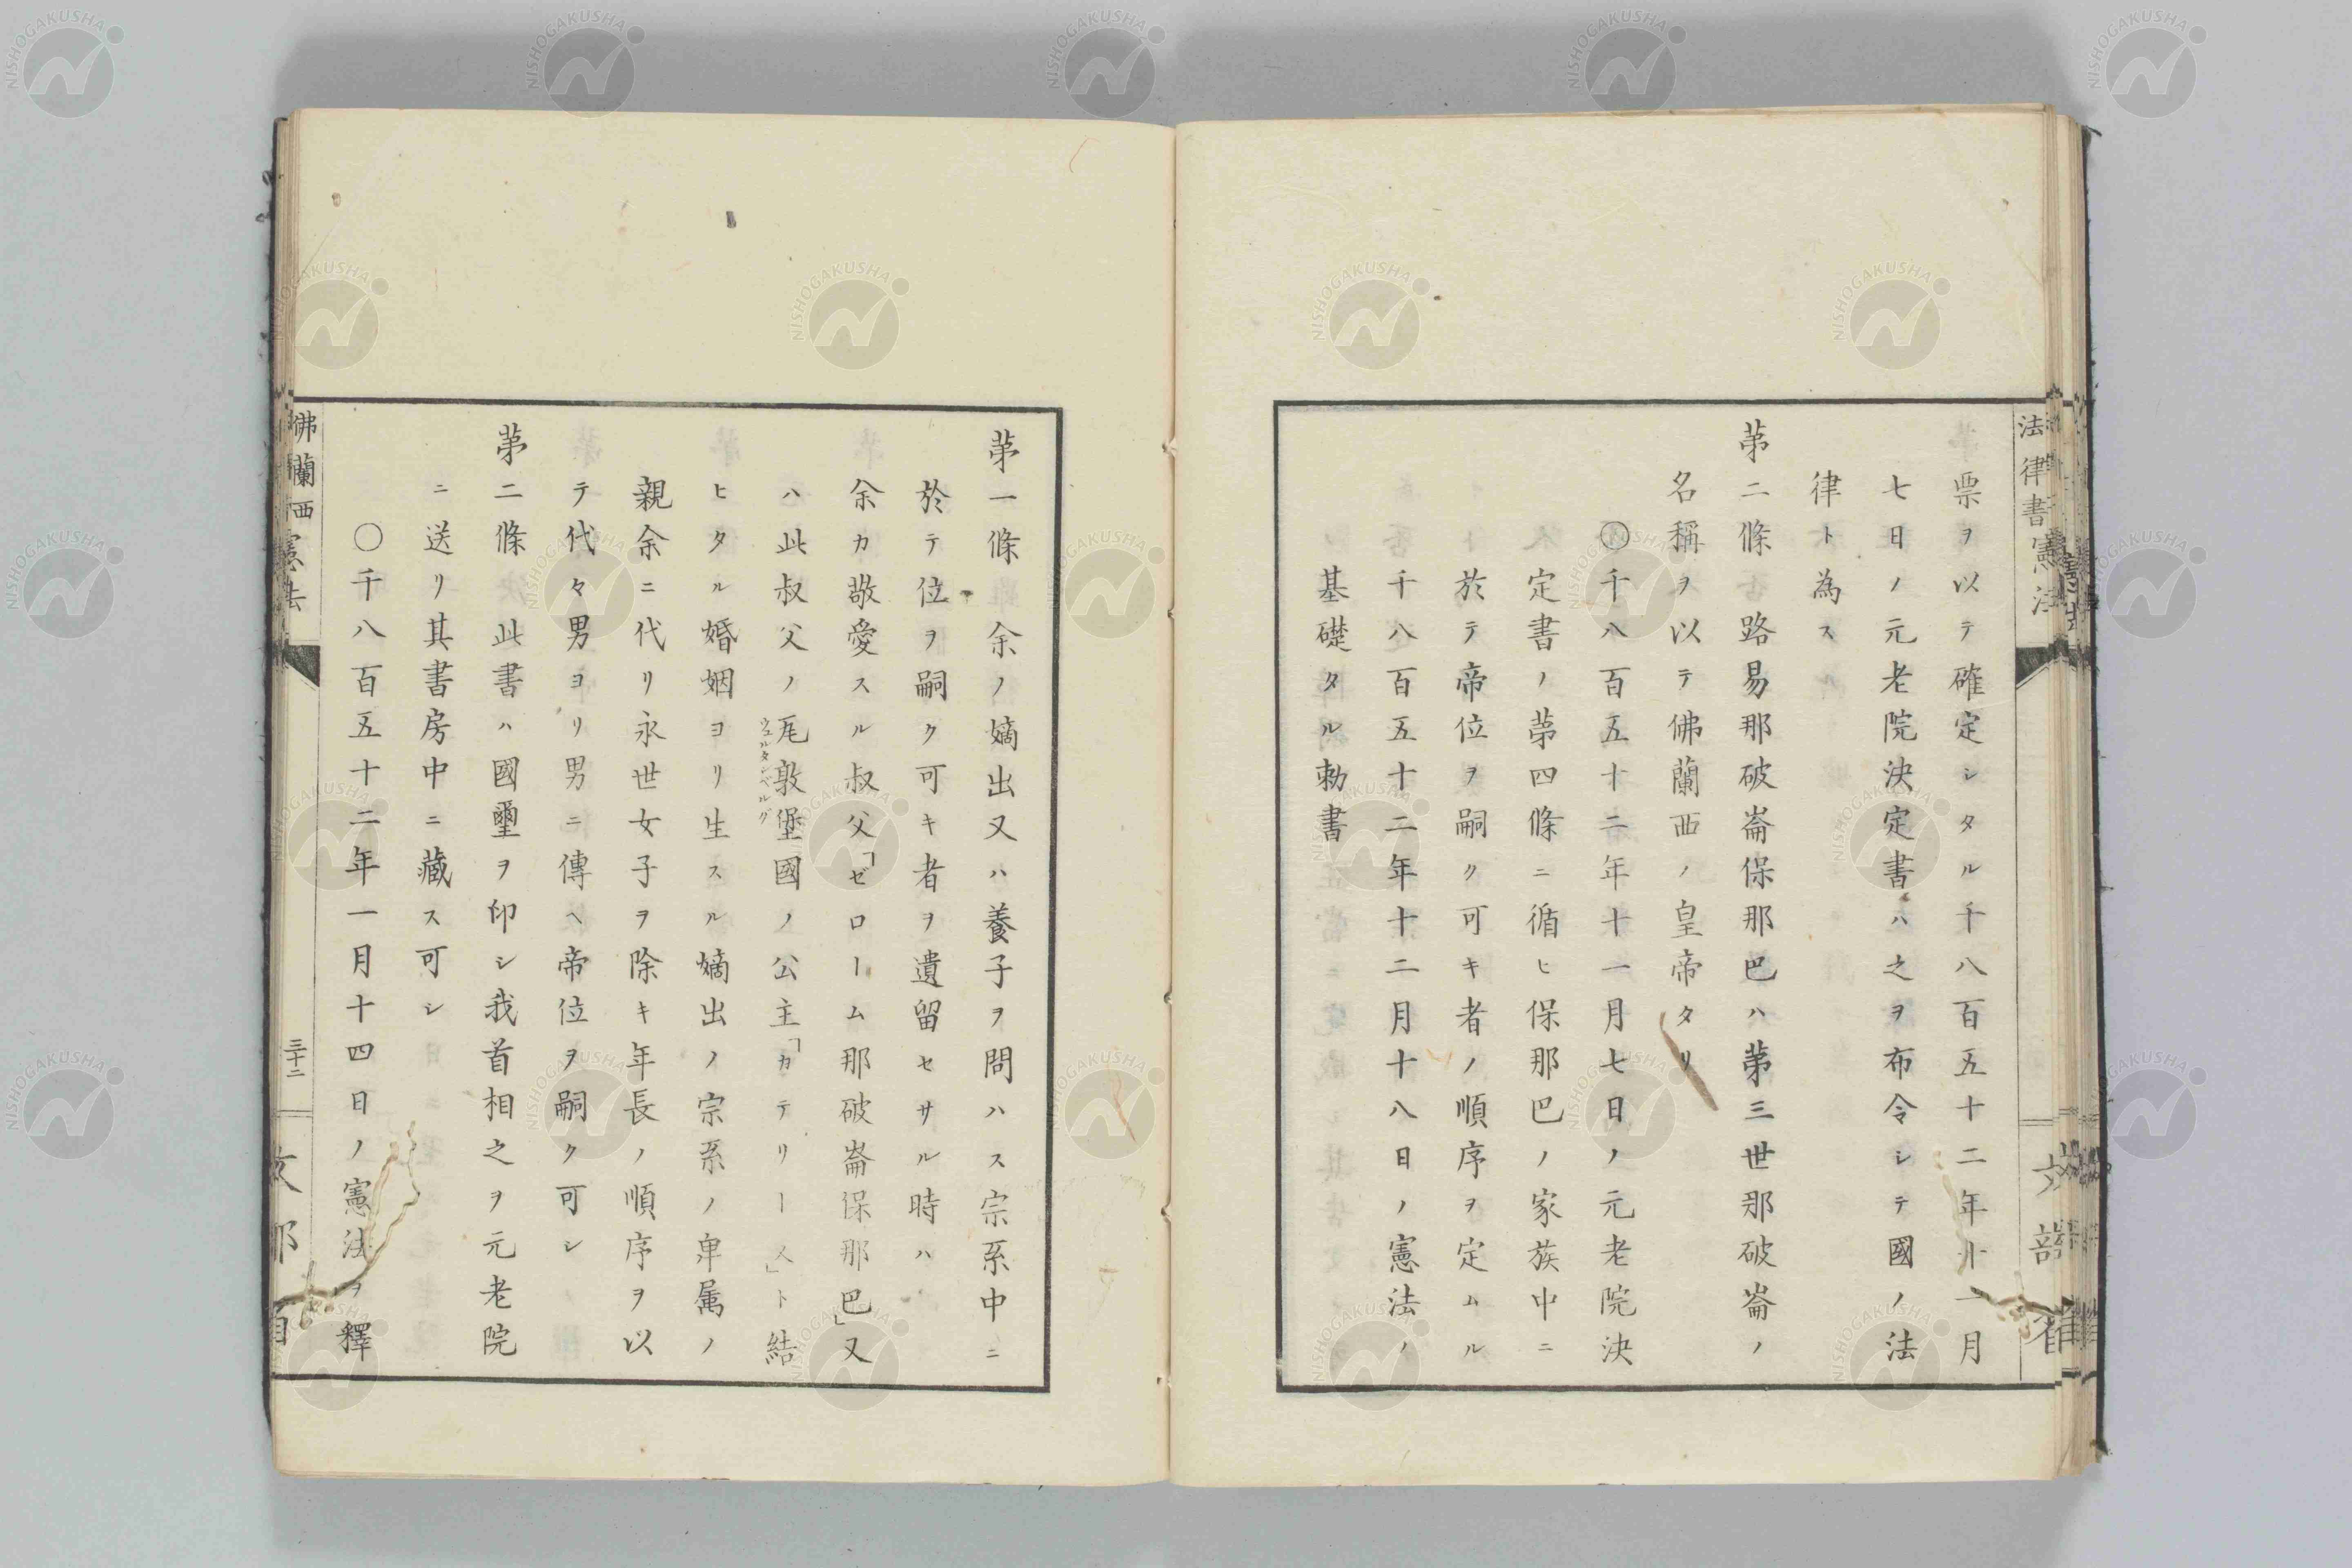 法律書憲法
票ヲ以テ確定シタル千八百五十二年十一月
七日ノ元老院決定書ハ之ヲ布令シテ國ノ法
律ト為ス
苐二條 路易那破崙保那巴ハ苐三世那破崙ノ
名稱ヲ以テ佛蘭西ノ皇帝タリ
〇千八百五十二年十一月七日ノ元老院決
定書ノ苐四條ニ循ヒ保那巴ノ家族中ニ
於テ帝位ヲ嗣ク可キ者ノ順序ヲ定ムル
千八百五十二年十二月十八日ノ憲法ノ
基礎タル勅書
苐一條 余ノ嫡出又ハ養子ヲ問ハス宗系中ニ
於テ位ヲ嗣ク可キ者ヲ遺留セサル時ハ
余カ敬愛スル叔父「ゼローム那破崙保那巴」又
ハ此叔父ノ瓦敦堡國ノ公主「カテリーヌ」ト結
ウェルタンベルグ
ヒタル婚姻ヨリ生スル嫡出ノ宗系ノ卑属ノ
親余ニ代リ永世女子ヲ除キ年長ノ順序ヲ以
テ代々男ヨリ男ニ傳ヘ帝位ヲ嗣ク可シ
苐二條 此書ハ國璽ヲ印シ我首相之ヲ元老院
ニ送リ其書房中ニ藏ス可シ
〇千八百五十二年一月十四日ノ憲法ヲ釋
佛蘭西憲法
三十二
NISHOGAKUSHA